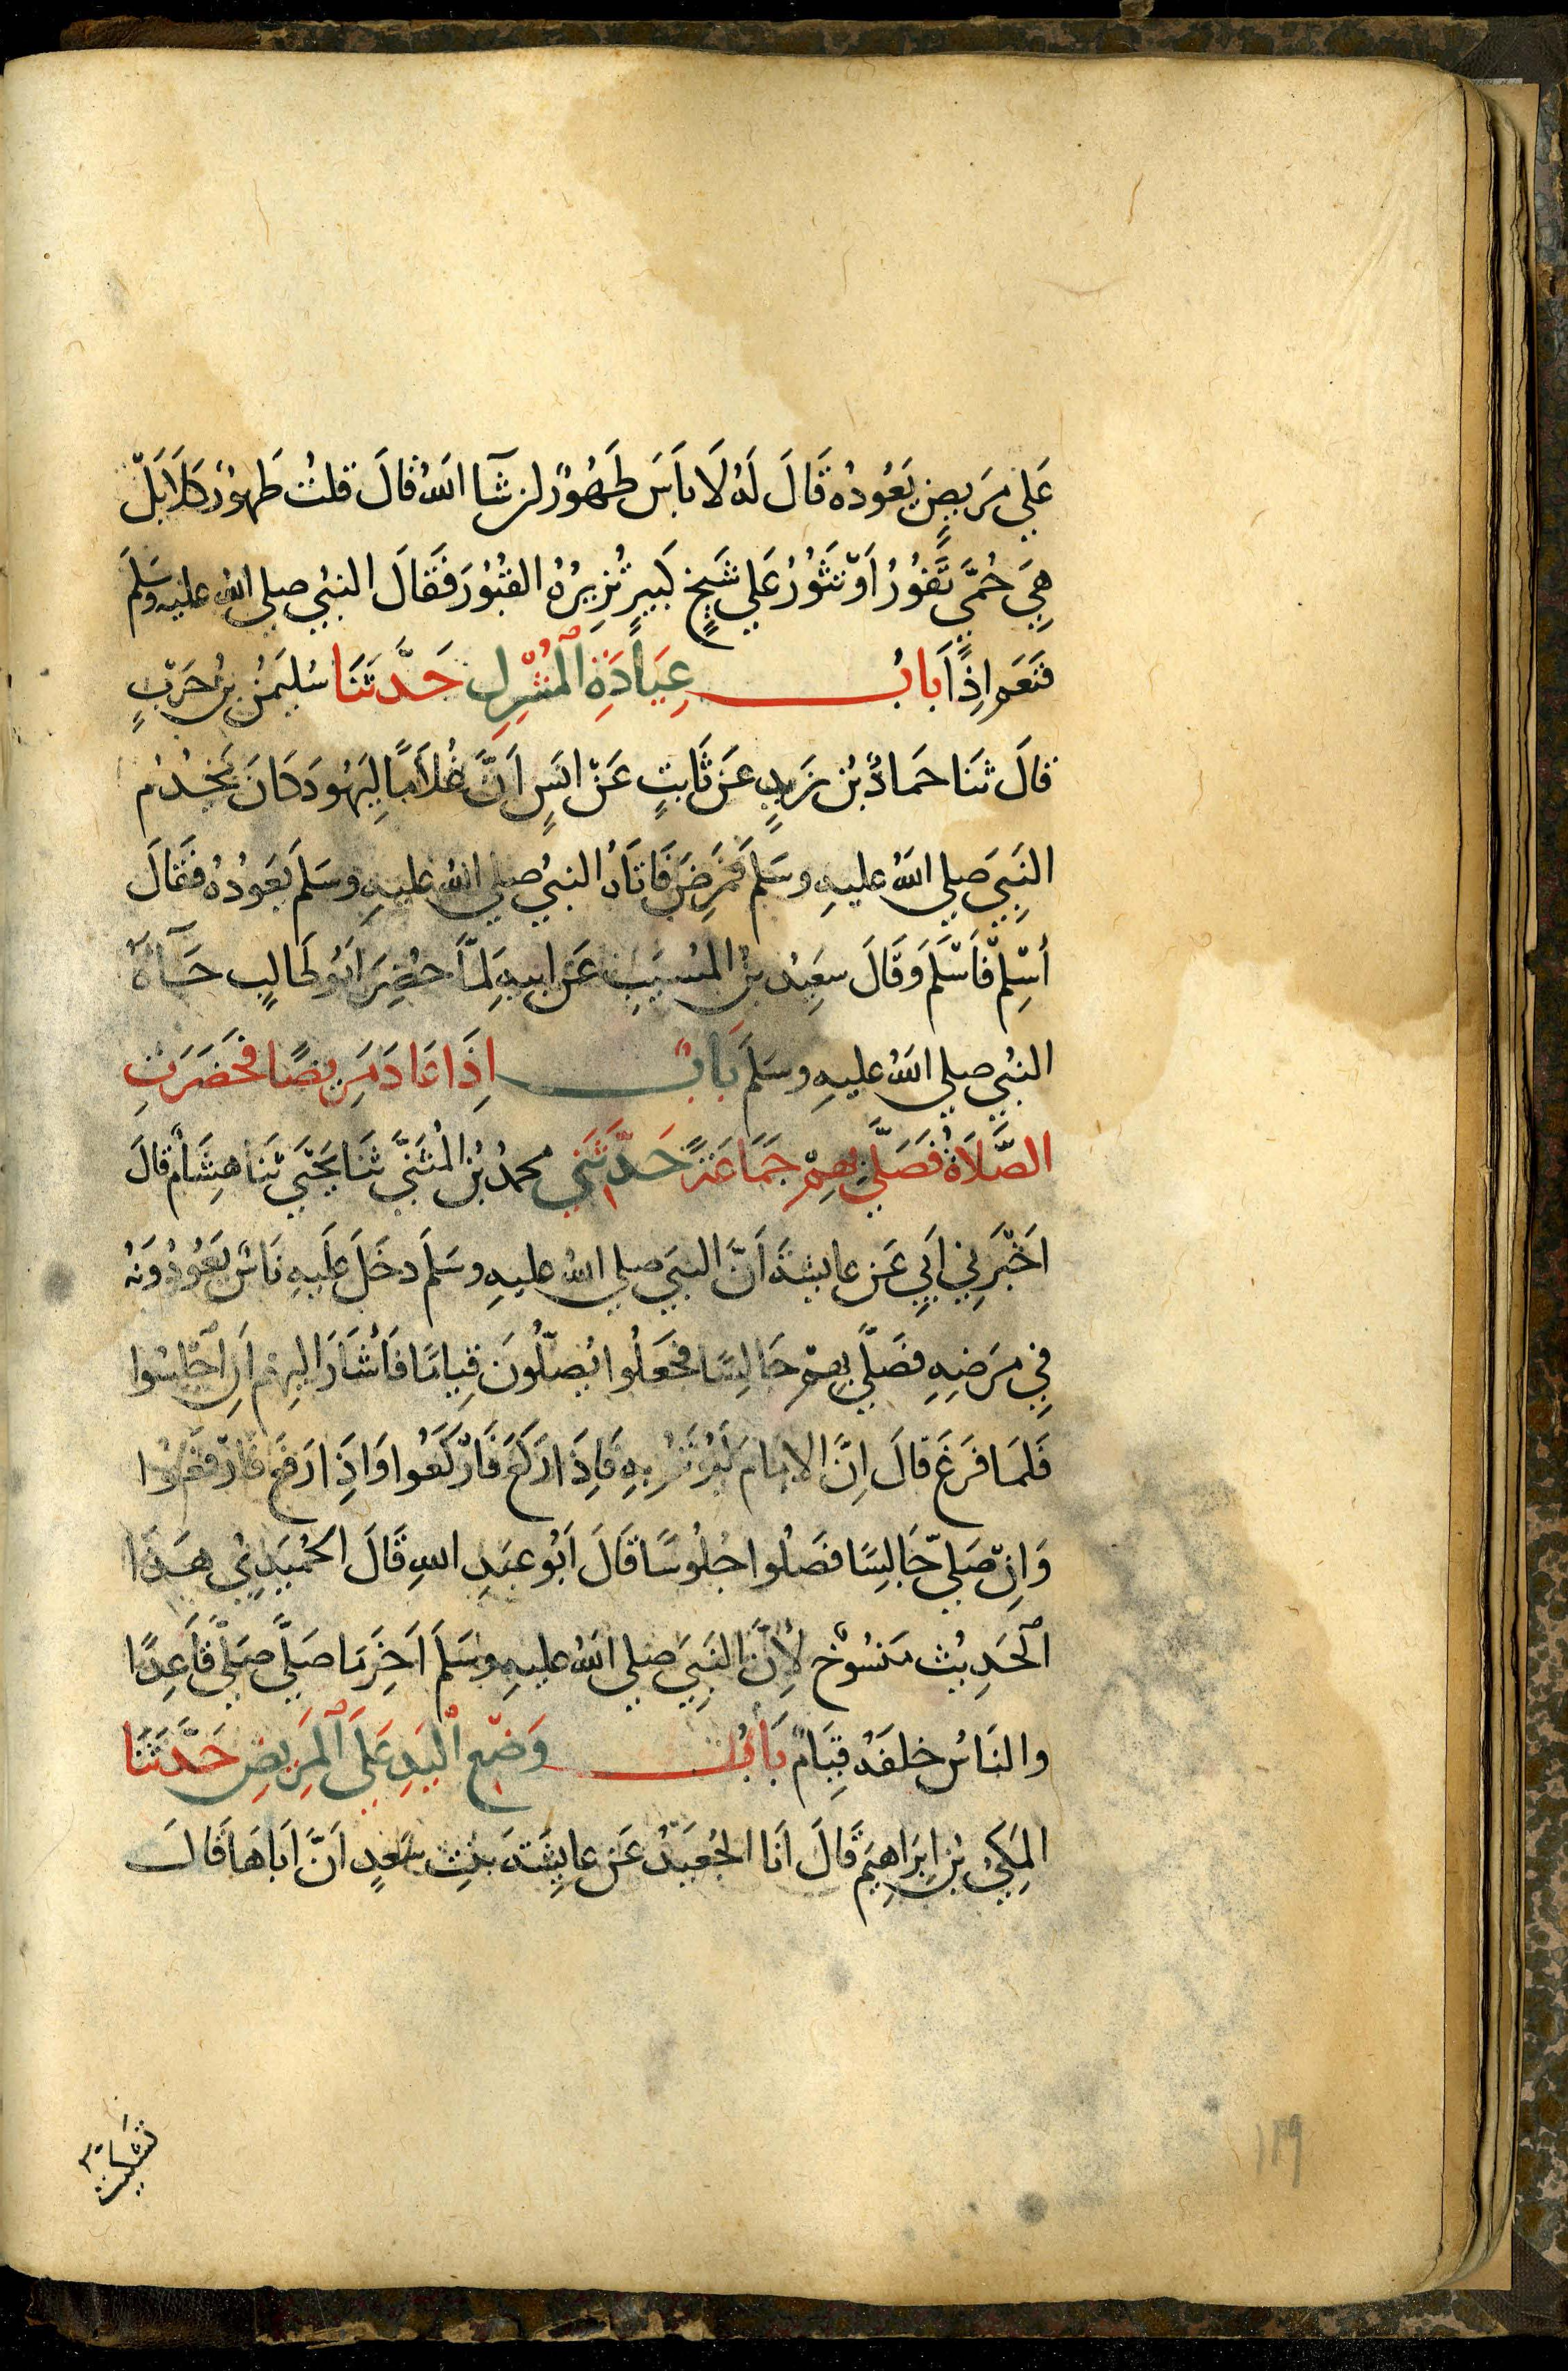 عَلَي مَرِيضٍ يَعُودُه قَالَ لَهُ لَا بَاَسَ طَهُورٌ اِن شَآ اللهُ قَالَ قلتُ طَهورٌ كَلَّا بَلْ
هِيَ حُمَّى تَفُورُ اَوْ تَثُورُ عَلَي شَيخٍ كَبِيرٍ تُزِيرُهُ القُبُورَ فَقَالَ النبيُ صلي الله عليه وسَلمَ
فَنَعَم اِذًا بابُ عِيَادَةِ الْمُشْرِكِ حَدَّثَنَا سُلَيمٰنُ بنُ حَرْبٍ
قالَ ثنَا حَمادُ بْن زَيدٍ عَن ثَابتٍ عَنْ انَسٍ اَنَّ غُلَامًا لِيَهُودَ كَانَ يَخدُم
النَبِيَ صَلي اللهُ عليهِ وسَلمَ فَمَرِضَ فَاتَاهُ النبيُ صلي اللهُ عليهِ وسَلمَ يَعُودُه فَقَالَ
أسْلِمْ فَاَسْلَمَ وَقَالَ سعَيِدُ بنُ المُسيَبِ عَن ابيهِ لمَّا حُضِرَ اَبُو طَالبٍ جَآهُ
النبيُ صلي اللهُ عليهِ وسَلمَ بَابٌ اِذَا عَادَ مَرِيضًا فَحَضَرَتِ
الصَّلَاةُ فَصَلَّي بِهِمْ جَمَاعَةً حَدَّثَنِي محمدُ بْنُ المُثَنَّي ثَنَا يَحْيَي ثنَا هِشَامٌ قالَ
اخْبَرَنِي اَبِي عَن عايشةَ اَنَّ النبيَ صلي اللهُ عليهِ وسَلَمَ دخَلَ عَلَيهِ نَاسٌ يَعُودُونَهُ
فِي مَرَضِهِ فصَلَّي بِهِمْ جَالِسًا فجَعَلُوا يُصَلُّونَ قِيامًا فَاَشَارَ اليهِم اَنِ اجْلِسُوا
فَلمَا فَرَغَ قالَ اِنَّ الامَامَ لَيُؤتَمُ بِهِ فَاِذَا رَكَعَ فَارْكَعُوا وَاذِا رَفعَ فَارْفَعُوا
وَانْ صَلَّي جَالِسًا فصَلُوا جُلُوسًا قالَ اَبُو عَبدِ اللهِ قَالَ الحُمَيدِيُ هَذَا
الْحَدِيثُ مَنسُوخٌ لِأَنَّ النَبِيَ صلي اللهُ عليهِ وسَلَمَ اَخِرَ مَا صَلَّي صَلَّي قَاعِدًا
والنَاسُ خلفَهُ قِيَامٌ بَابُ وَضْعِ الْيَدِ عَلَي الْمَرِيضِ حَدَّثَنَا
المَكِيُ بْنُ اِبرَاهِيمَ قَالَ اَنَا الجُعَيْدُ عَن عايِشَةَ بنتِ سَعدٍ اَنَّ اَبَاهَا قَالَ
تَشكَيتُ
١١٩